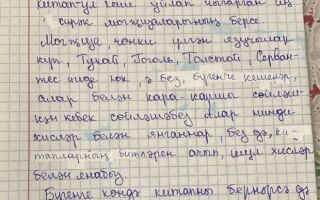 китап-ул кеше уйлап чыгарган иң
серле могҗизаларның берсе.
Могҗиза, чөнки үлгән язучылар
күп, Тукай, Гоголь, Толстой, Серван-
тес инде юк, ә без, бүгенге кешеләр,
алар белән кара-каршы сөйләш-
кән кебек сөйләшәбез. Алар нинди
хисләр белән янганнар, без дә, ки-
тапларның битләрен ачып, шул хисләр
белән янабыз.
Бүгенге көндә китапны бернәрсә дә